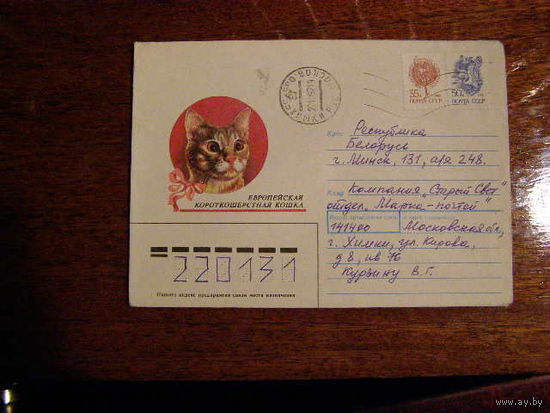 35к ПОЧТА СССР
50к ПОЧТА СССР
Куда Республика
Беларусь
г. Минск, 131, а/я 248.
ЕВРОПЕЙСКАЯ
КОРОТКОШЕРСТНАЯ КОШКА
Кому Компания „Старый Свет"
отдел „Марка-почтой"
141400 Московская обл.,
г. Химки, ул. Кирова,
д 8, кв 76
Курьину В. Г.
220131
Пишите индекс предприятия связи места назначения
www.ay.by